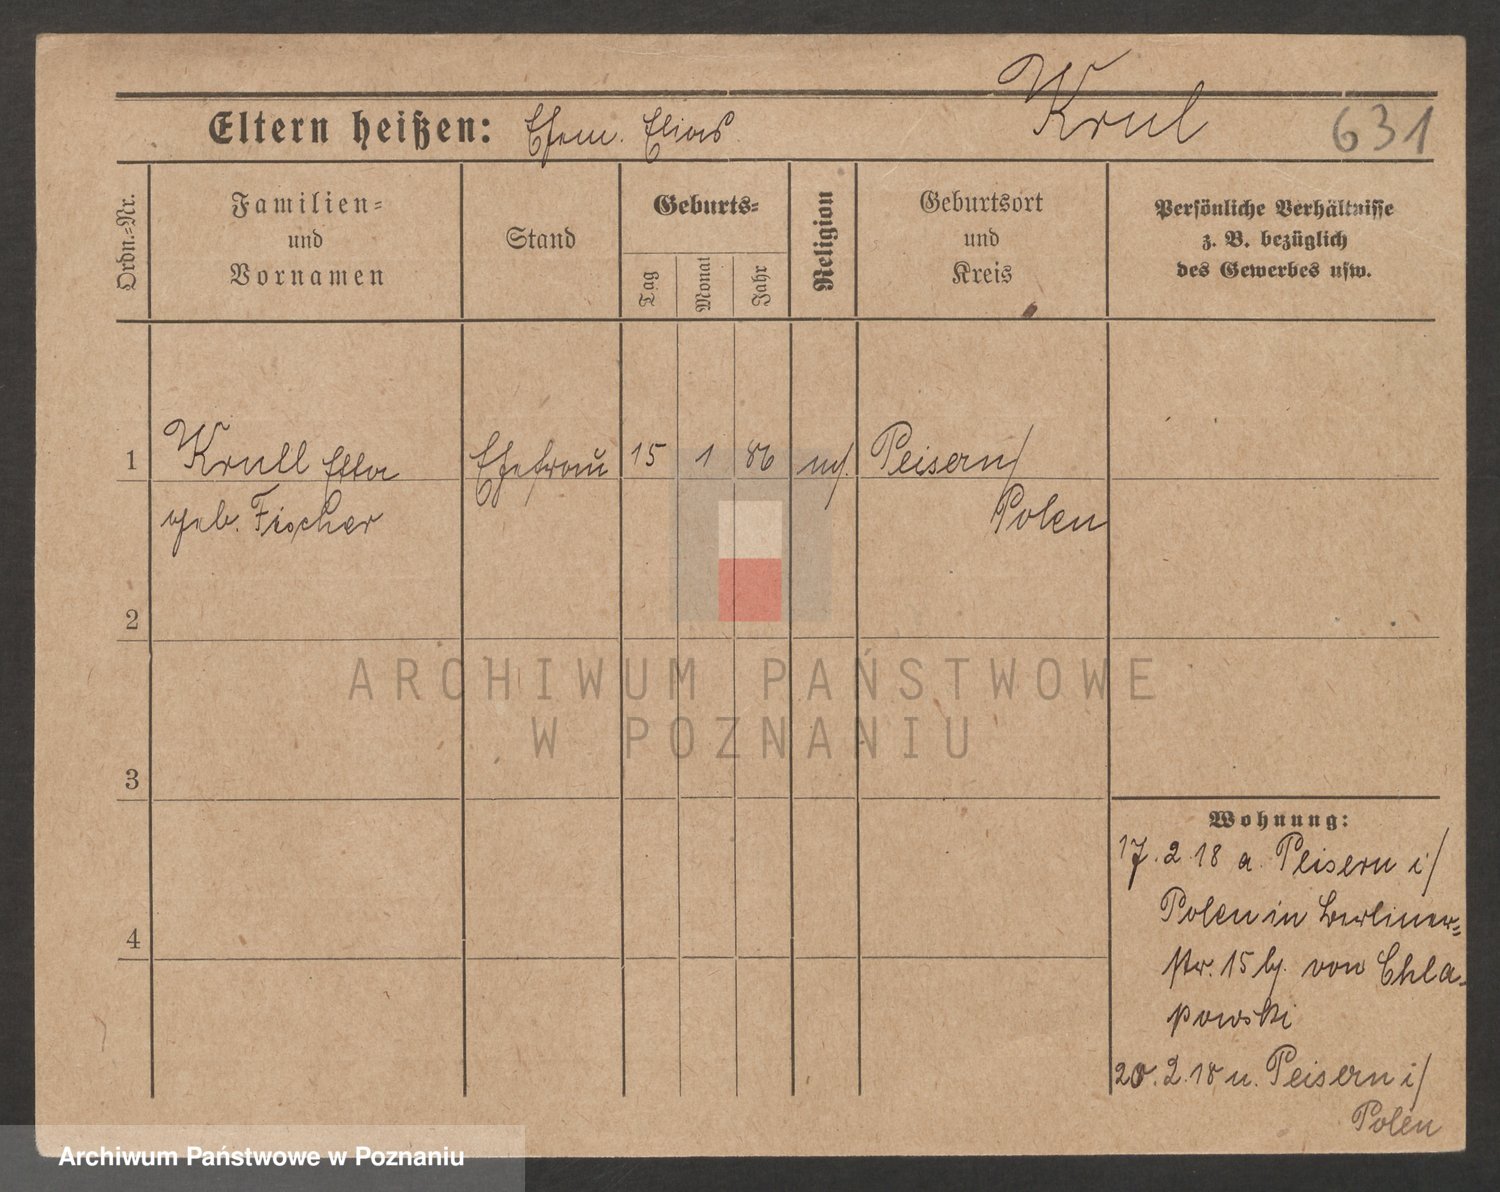 Krul
631
Eltern heißen: Ehem. Elias
Ordn.=Nr.
Familien=
und
Vornamen
Stand
Geburts=
Tag
Monat
Jahr
Religion
Geburtsort
und
Kreis
Persönliche Verhältnisse
z. B. bezüglich
des Gewerbes usw.
1 Krull Etta Ehefrau 15 1 86 Peisern/
geb. Fischer Polen
2
3
4
Wohnung:
17. 2. 18 a. Peisern i/
Polen in Berliner=
str. 15 bj. von Chla-
powski
20. 2. 18 n. Peisern i/
Polen
ARCHIWUM PAŃSTWOWE
W POZNANIU
Archiwum Państwowe w Poznaniu